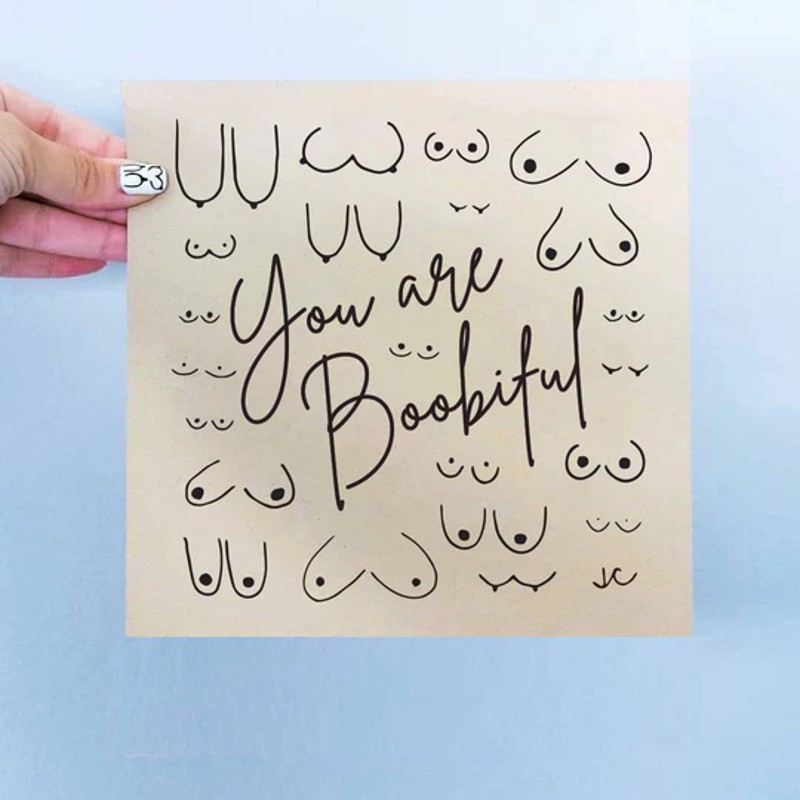 You are
Boobiful
JC